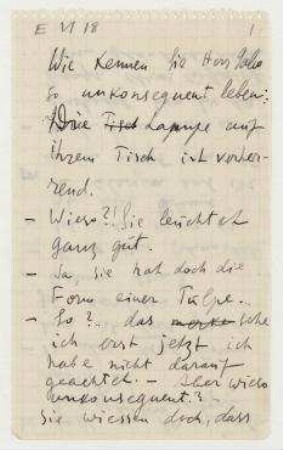 E VI 18 1
Wie kennen Sie Herr
so unkonsequent leben:
Die Tisch Lampe auf
ihrem Tisch ist verhee-
rend.
- Wieso?! Sie leuchtet
ganz gut.
- Ja, sie hat doch die
Form einer Tulpe..
- So?.. das merke sehe
ich erst jetzt ich
habe nicht darauf
geachtet. - Aber wieso
unkonsequent.?
Sie wiessen doch, dass